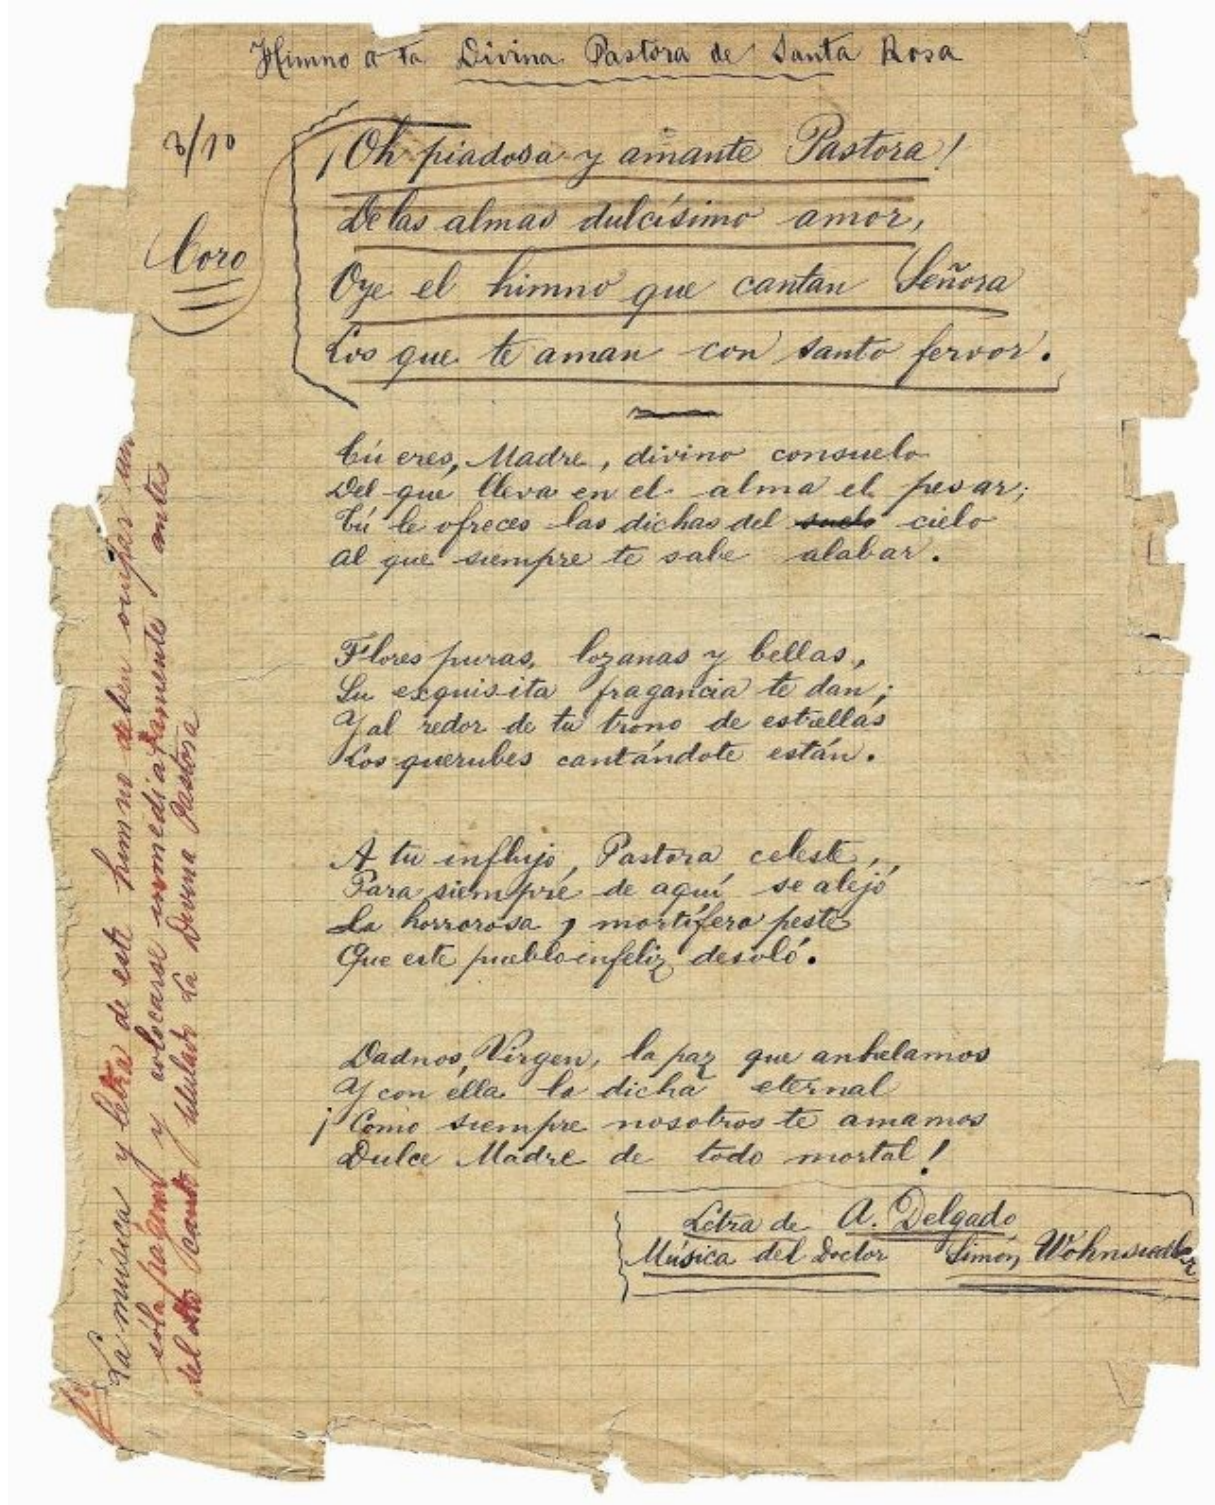 Himno a la Divina Pastora de Santa Rosa
3/10
¡Oh piadosa y amante Pastora!
De las almas dulcísimo amor,
Coro
Oye el himno que cantan Señora
Los que te aman con santo fervor.
Tú eres, Madre, divino consuelo
Del que lleva en el alma el pesar;
Tú le ofreces las dichas del suelo cielo
Al que siempre te sabe alabar.
Flores puras, lozanas y bellas,
Su exquisita fragancia te dan;
Y al redor de tu trono de estrellas
Los querubes cantándote están.
A tu influjo, Pastora celeste,
Para siempre de aquí se alejó
La horrorosa y mortífera peste
Que este pueblo infeliz desoló.
Dadnos, Virgen, la paz que anhelamos
Y con ella la dicha eternal
¡Como siempre nosotros te amamos
Dulce Madre de todo mortal!
Letra de A. Delgado
Música del Doctor Simón Wohnsiedler
La música y letra de este himno deben ocupar una
sóla página y colocarse inmediatamente antes
del canto titulado La Divina Pastora